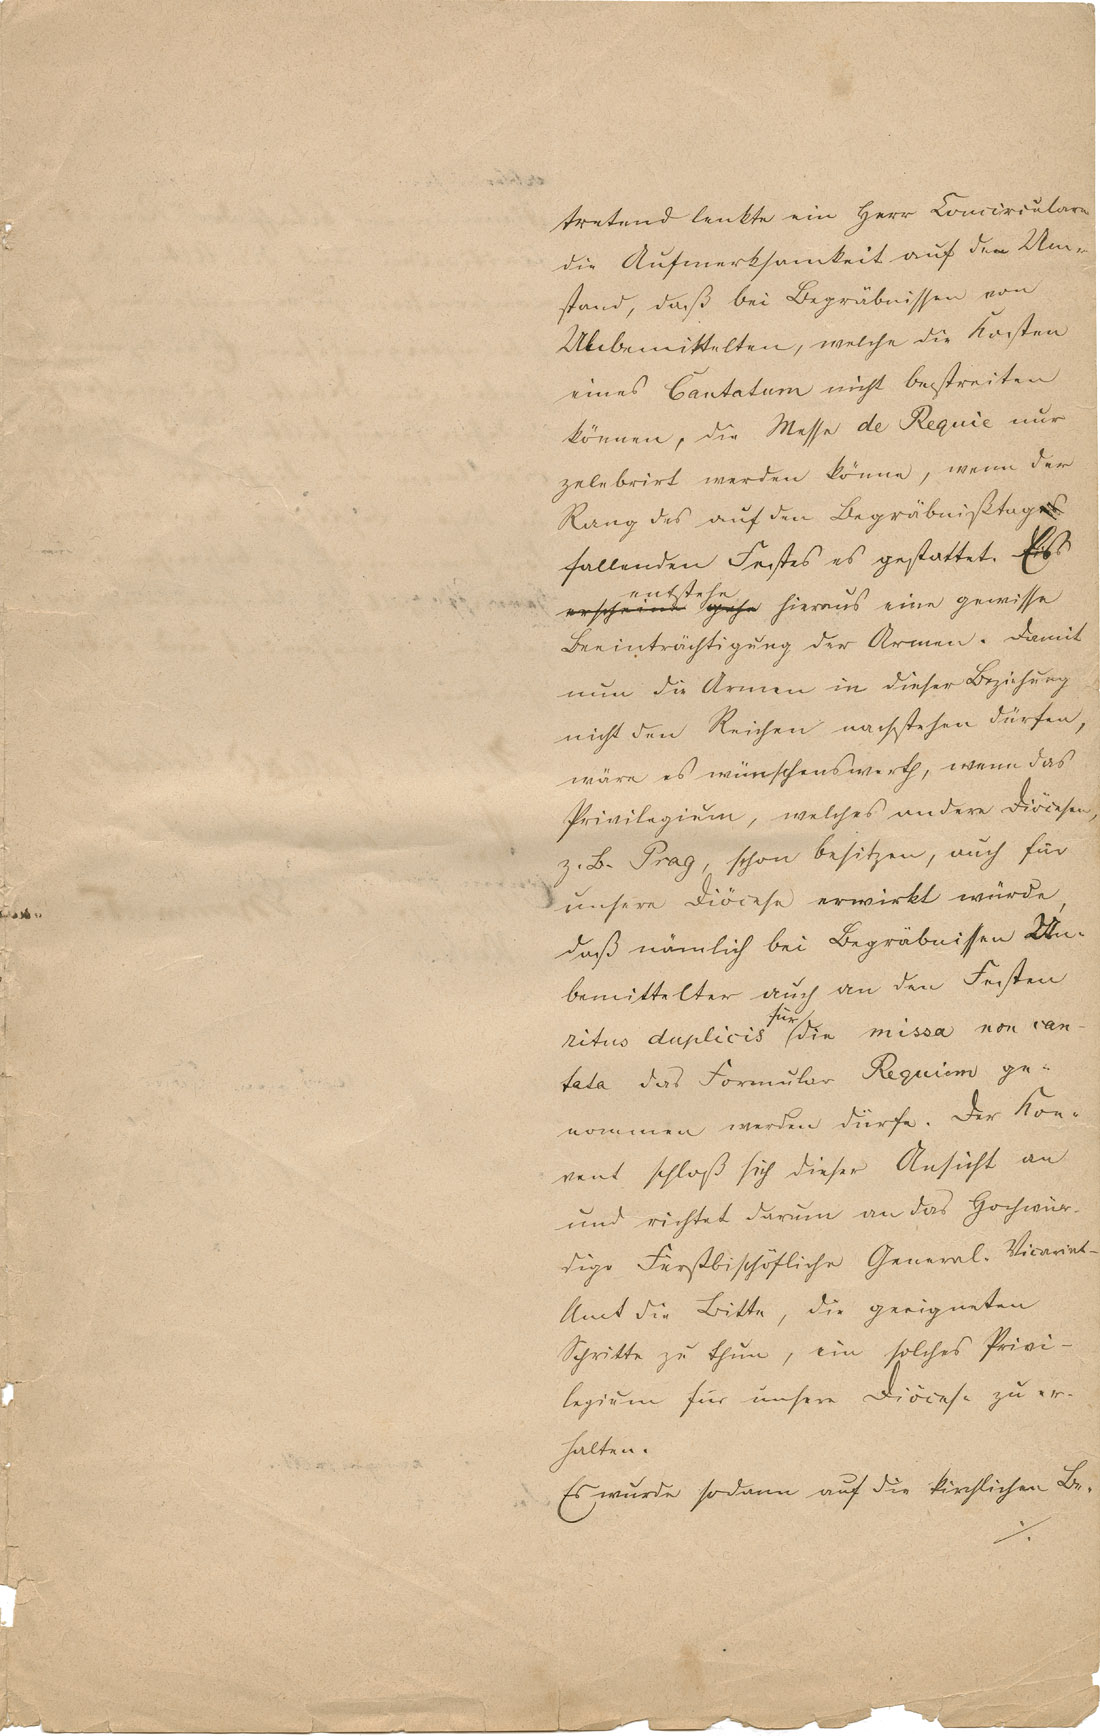 tretend lenkte ein Herr Concirculare
die Aufmerksamkeit auf den Um-
stand, daß bei Begräbnissen von
Unbemittelten, welche die Kosten
eines Cantatum nicht bestreiten
können, die Messe de Requie nur
zelebrirt werden könne, wenn der
Rang des auf den Begräbnißtag
fallenden Festes es gestattet. Es
entstehe
erscheine gehe hieraus eine gewisse
Beeinträchtigung der Armen. Damit
nun die Armen in dieser Beziehung
nicht den Reichen nachstehen dürfen,
wäre es wünschenswerth, wenn das
Privilegium, welches andere Diöcesen,
z. B. Prag, schon besitzen, auch für
unsere Diöcese erwirkt würde,
daß nämlich bei Begräbnissen Un-
bemittelter auch an den Festen
ritus duplicis für die missa non can-
tata das Formular Requiem ge-
nommen werden dürfe. Der Kon-
vent schloß sich dieser Ansicht an
und richtet darum an das Hochwür-
dige Fürstbischöfliche General-Vicariat-
Amt die Bitte, die geeigneten
Schritte zu thun, ein solches Privi-
legium für unsere Diöcese zu er-
halten.
Es wurde sodann auf die kirchlichen Be-
./.